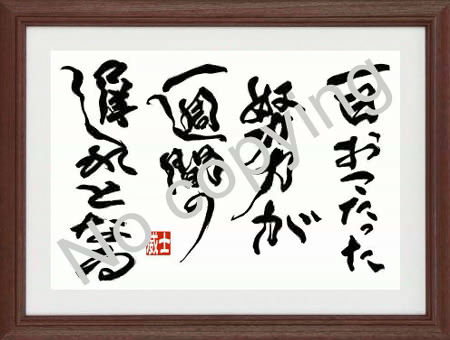 一日おこたった
努力が
一週間の
遅れと為る
士威
No copying